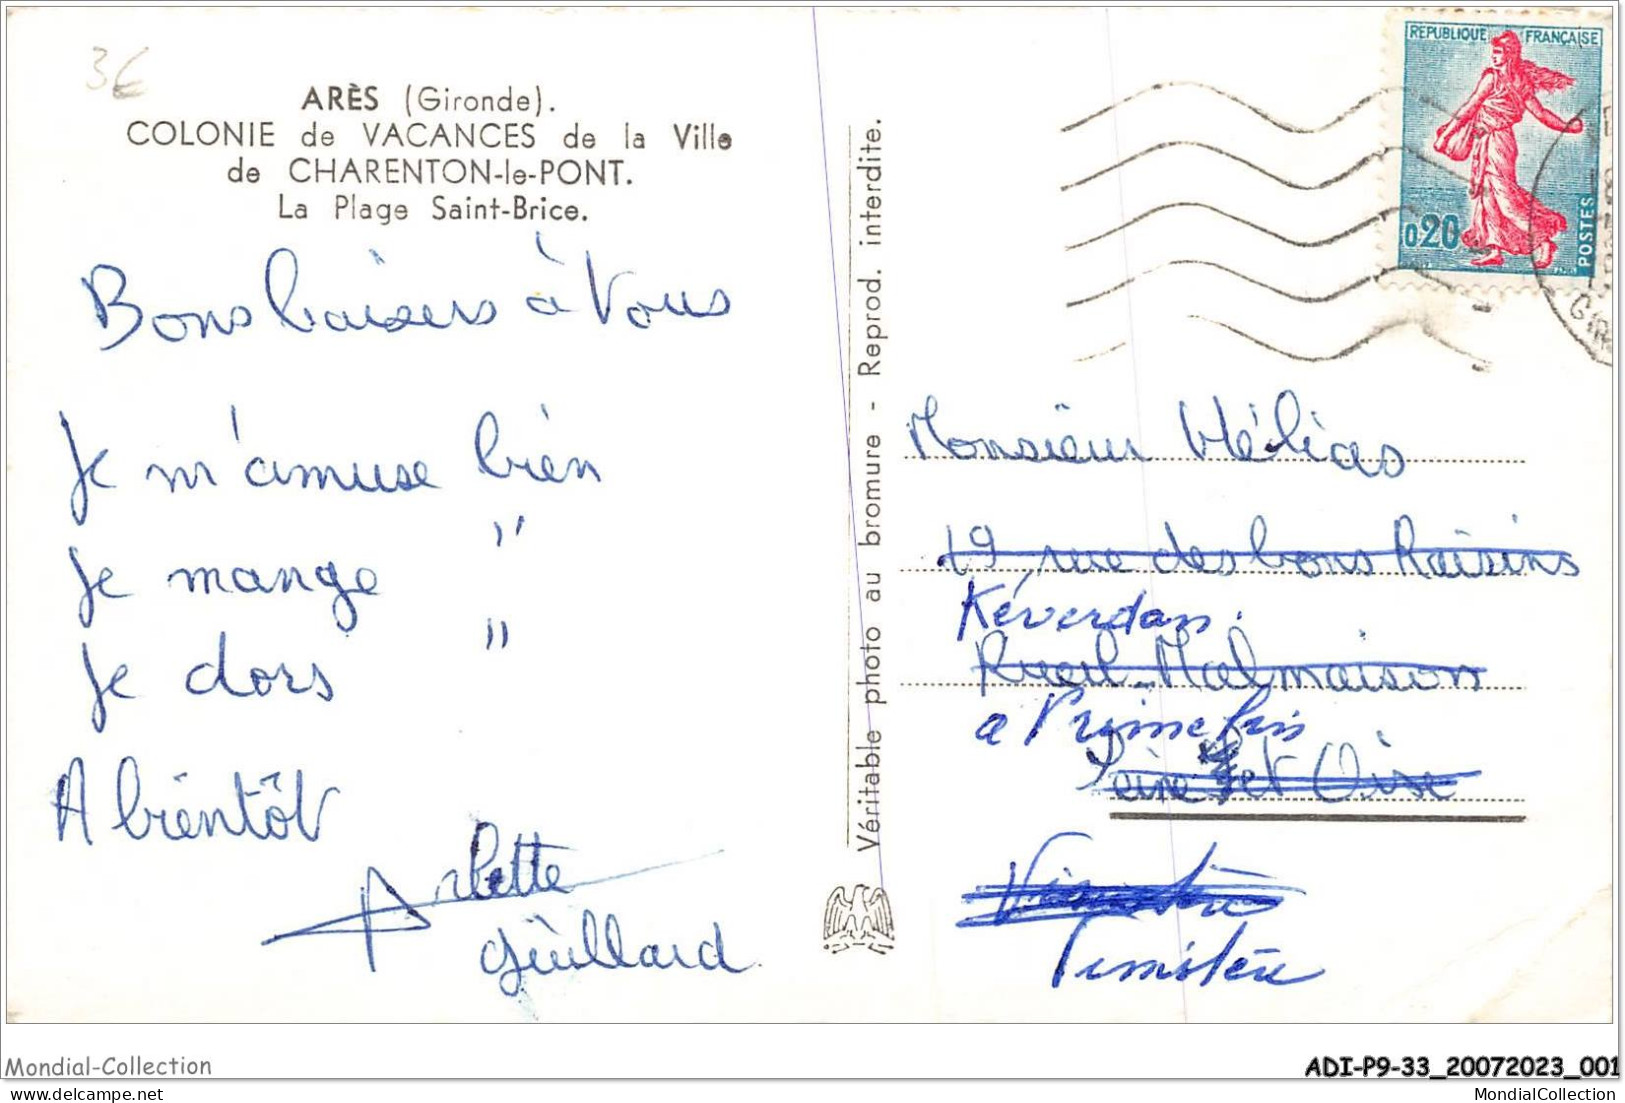 3€
ARÈS (Gironde).
COLONIE de VACANCES de la Ville
de CHARENTON-le-PONT.
La Plage Saint-Brice.
Bons baisers à Vous
Je m'amuse bien
Je mange "
Je dors "
A bientôt
Arlette
Guillard
Véritable photo au bromure - Reprod. interdite.
REPUBLIQUE FRANÇAISE
0,20
POSTES
GIR
Monsieur Hélias
19 rue des bons Raisins
Kéverdan.
Rueil-Malmaison
a Primelin
Seine et Oise
Finistère
Mondial-Collection
ADI-P9-33_20072023_001
https://www.delcampe.net
MondialCollection